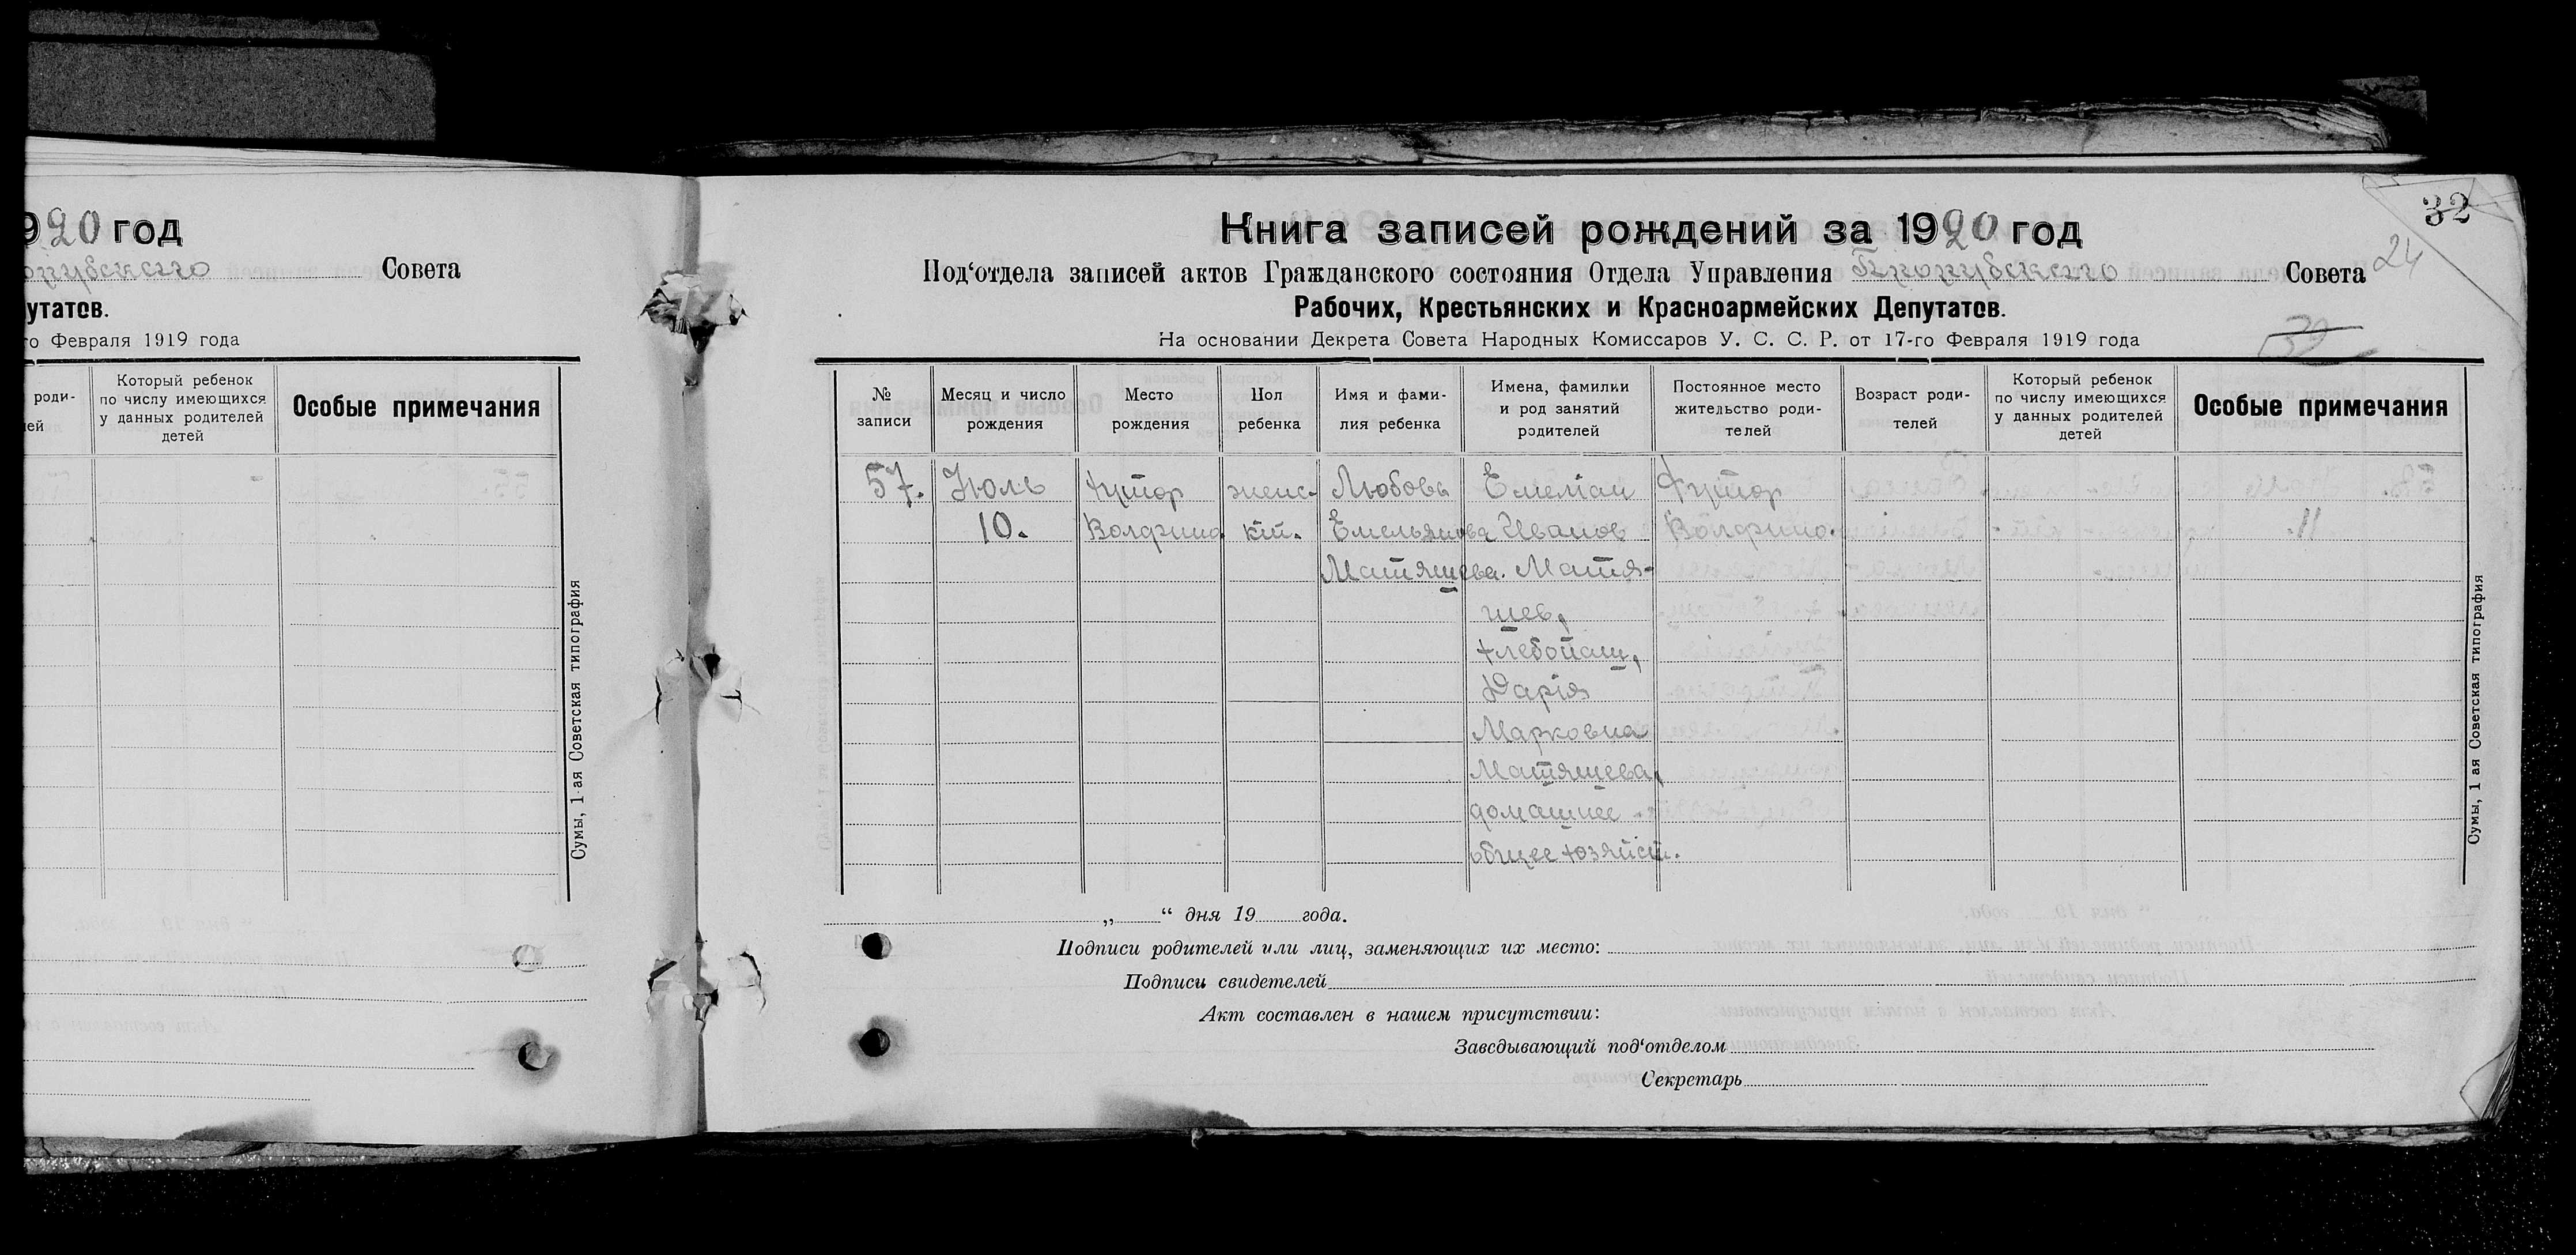 920 год
Совета
утатов.
го Февраля 1919 года
роди-
ей
Который ребенок
по числу имеющихся
у данных родителей
детей
Особые примечания
Сумы, 1-ая Советская типография
32
24
Книга записей рождений за 1920 год
Под‘отдела записей актов Гражданского состояния Отдела Управления Совета
Рабочих, Крестьянских и Красноармейских Депутатов.
На основании Декрета Совета Народных Комиссаров У. С. С. Р. от 17-го Февраля 1919 года
№
записи
Месяц и число
рождения
Место
рождения
Пол
ребенка
Имя и фами-
лия ребенка
Имена, фамилии
и род занятий
родителей
Постоянное место
жительство роди-
телей
Возраст роди-
телей
Который ребенок
по числу имеющихся
у данных родителей
детей
Особые примечания
57. Июль хутор женс- Любовь Емелiан хутор
10. Волфино. кiй. Емельянова Иванов Волфино.
Матяшева. Матя-
шев,
хлебопаш,
Дарiя
Марковна
Матяшева,
домашнее
общее хозяйст.
Сумы, 1 ая Советская типография
„ “ дня 19 года.
Подписи родителей или лиц, заменяющих их место:
Подписи свидетелей
Акт составлен в нашем присутствии:
Заведывающий под‘отделом
Секретарь